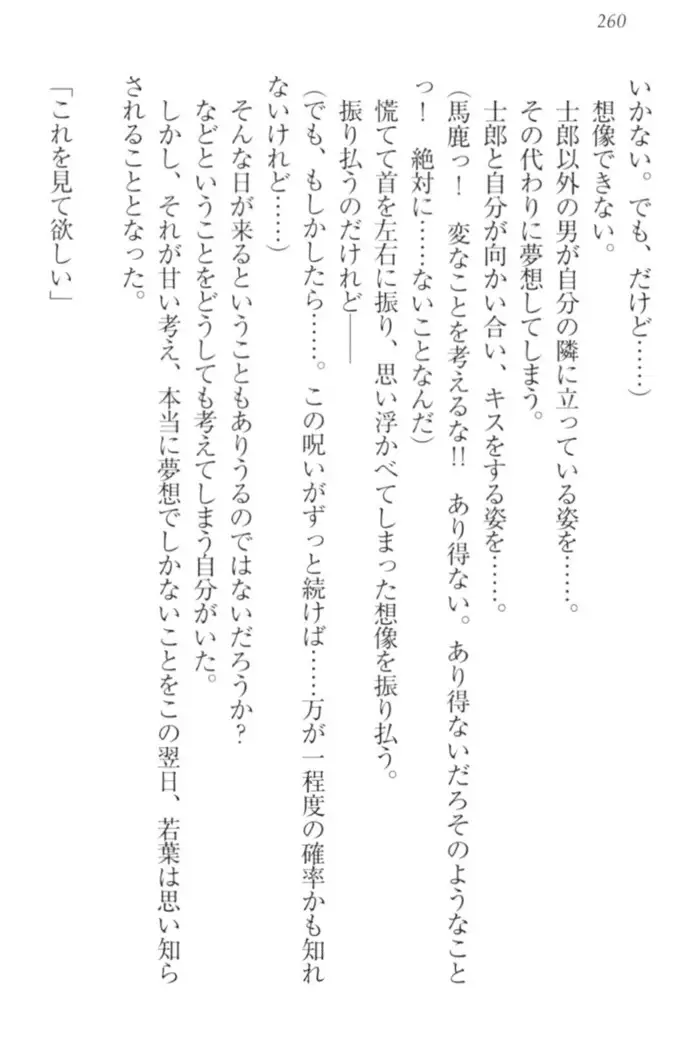 260
いかない。でも、だけど……)
想像できない。
士郎以外の男が自分の隣に立っている姿を……。
その代わりに夢想してしまう。
士郎と自分が向かい合い、キスをする姿を……。
(馬鹿っ! 変なことを考えるな!! あり得ない。あり得ないだろそのようなこと
っ! 絶対に……ないことなんだ)
慌てて首を左右に振り、思い浮かべてしまった想像を振り払う。
振り払うのだけれど――
(でも、もしかしたら……。この呪いがずっと続けば……万が一程度の確率かも知れ
ないけれど……)
そんな日が来るということもありうるのではないだろうか?
などということをどうしても考えてしまう自分がいた。
しかし、それが甘い考え、本当に夢想でしかないことをこの翌日、若葉は思い知ら
されることとなった。
「これを見て欲しい」